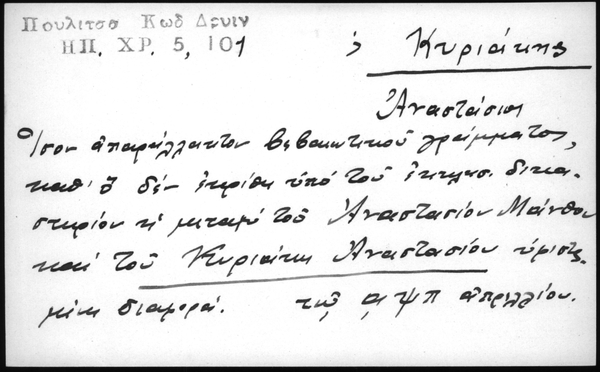 Πουλιτσα Κωδ Δρυιν
ΗΠ. ΧΡ. 5, 101
ὁ Κυριάκης
Ἀναστάσιος
Ὅ Ἴσον ἀπαράλλακτον βεβαιωτικοῦ γράμματος,
καθ' ὃ δὲν ἐκρίθη ὑπὸ τοῦ ἐκκλησ. δικα-
στηρίου ἡ μεταξὺ τοῦ Ἀναστασίου Μάνθου
καὶ τοῦ Κυριάκη Ἀναστασίου ὑφιστα-
μένη διαφορά. τῷ αψπ ἀπριλλίου.